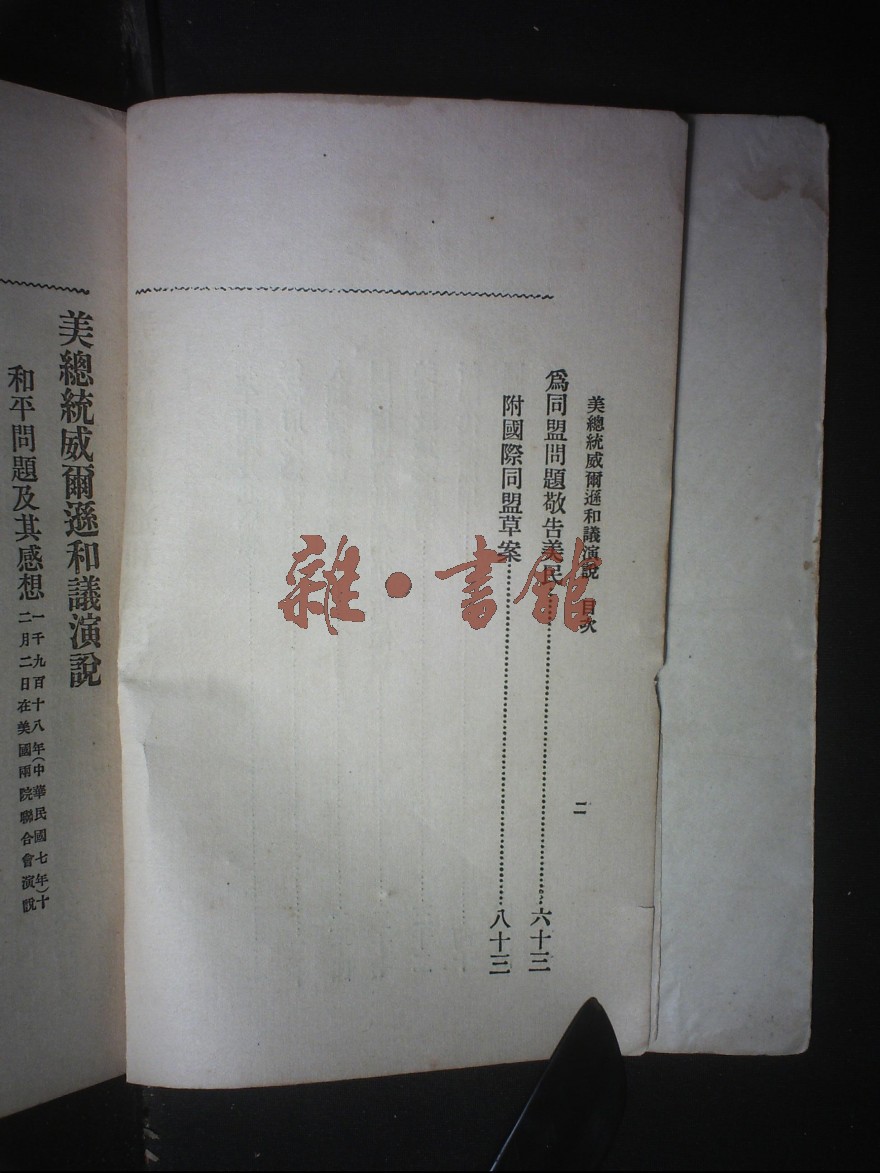 美總統威爾遜和議演說　目次
二
爲同盟問題敬告美民……六十三
附國際同盟草案……八十三
美總統威爾遜和議演說
和平問題及其感想
一千九百十八年(中華民國七年)十
二月二日在美國兩院聯合會演說
雜·書館